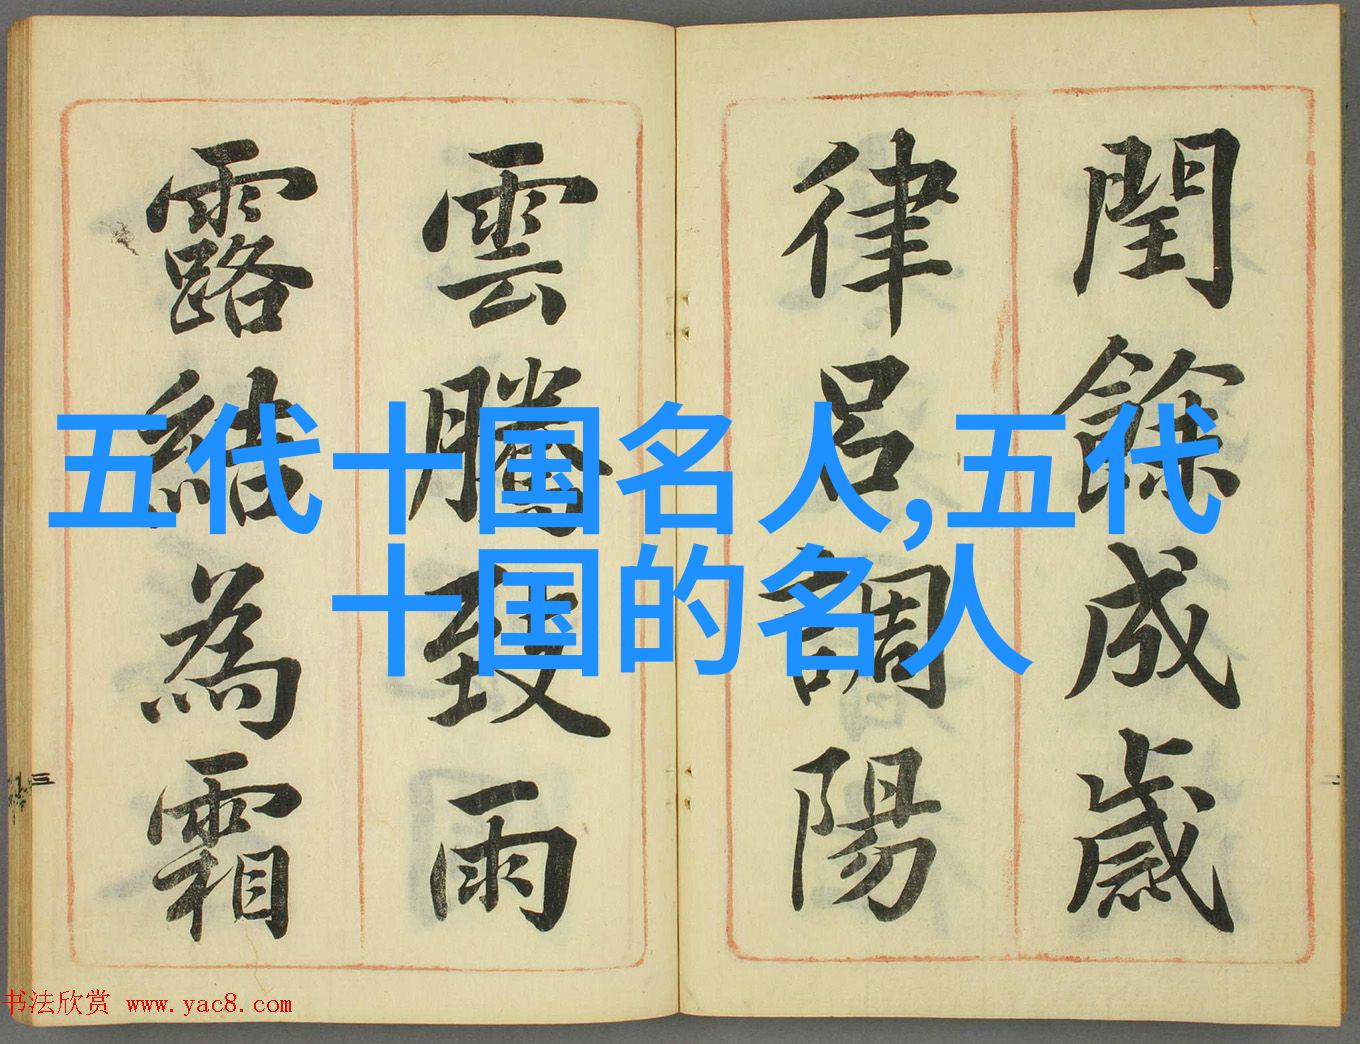 閏餘成歲
律呂調陽
雲騰致雨
露結為霜
五代十国名人,五代
十国的名人
三
二
书法欣赏 www.yac8.com